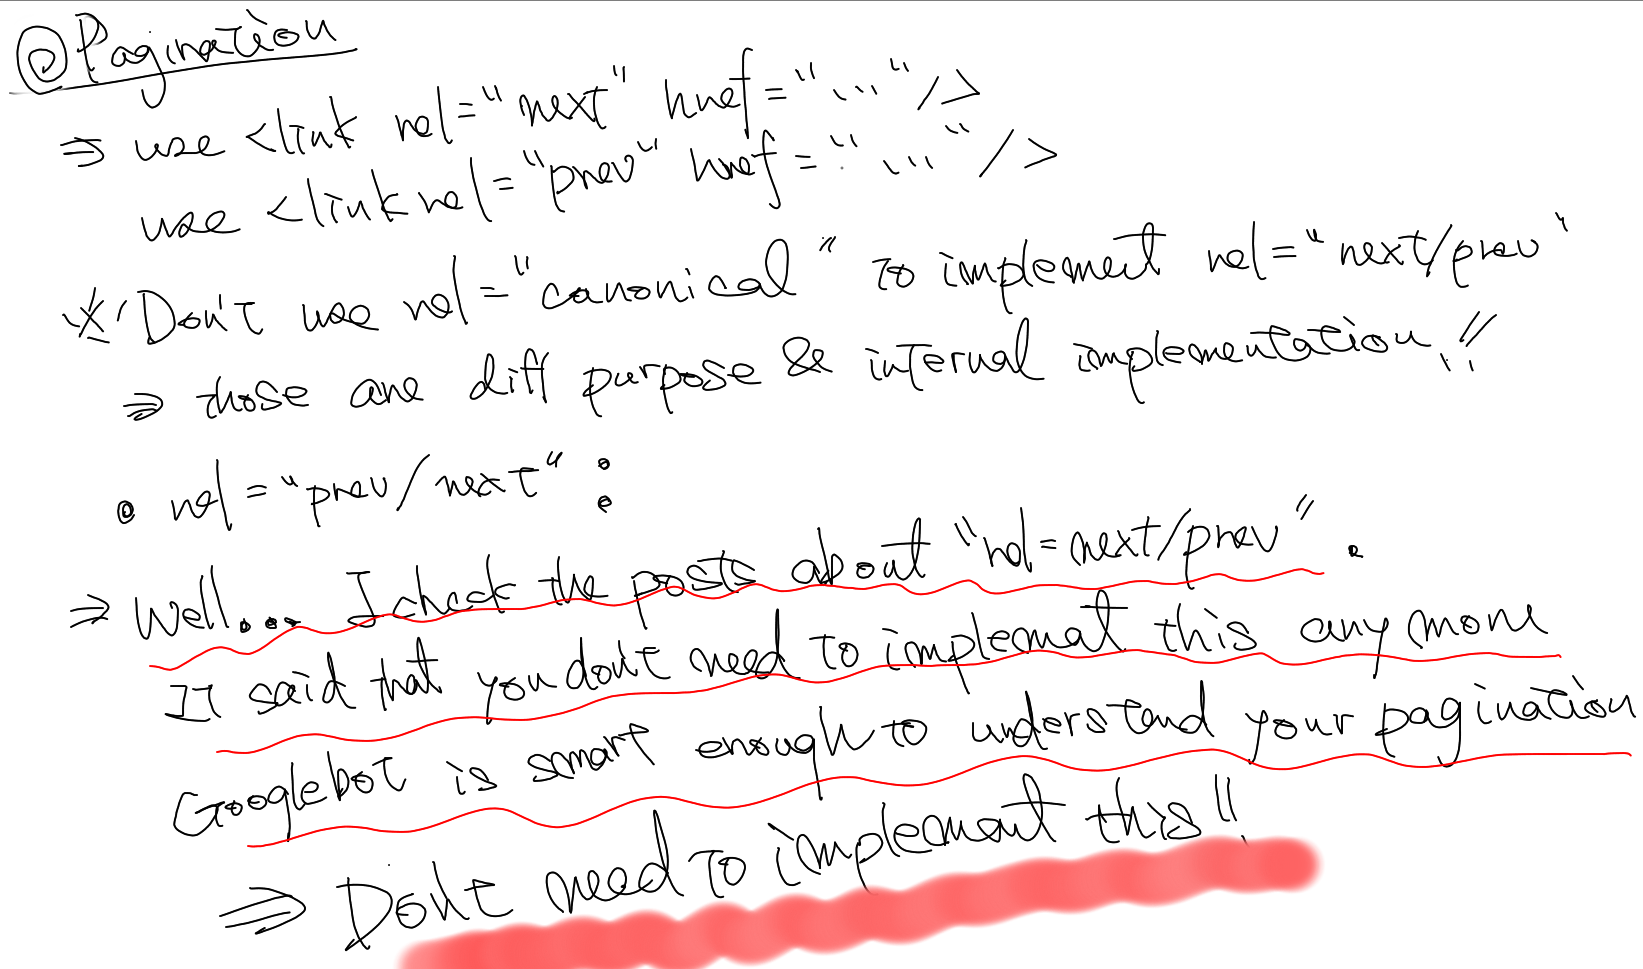 ◎ Pagination
⇒ use <link rel="next" href="..."/>
use <link rel="prev" href="..."/>
※ Don't use rel="canonical" to implement rel="next/prev"
⇒ those are diff purpose & internal implementation!!
• rel="prev/next":
⇒ Well... I check the posts about "rel=next/prev".
It said that you don't need to implement this any more
Googlebot is smart enough to understand your pagination
⇒ Don't need to implement this!!